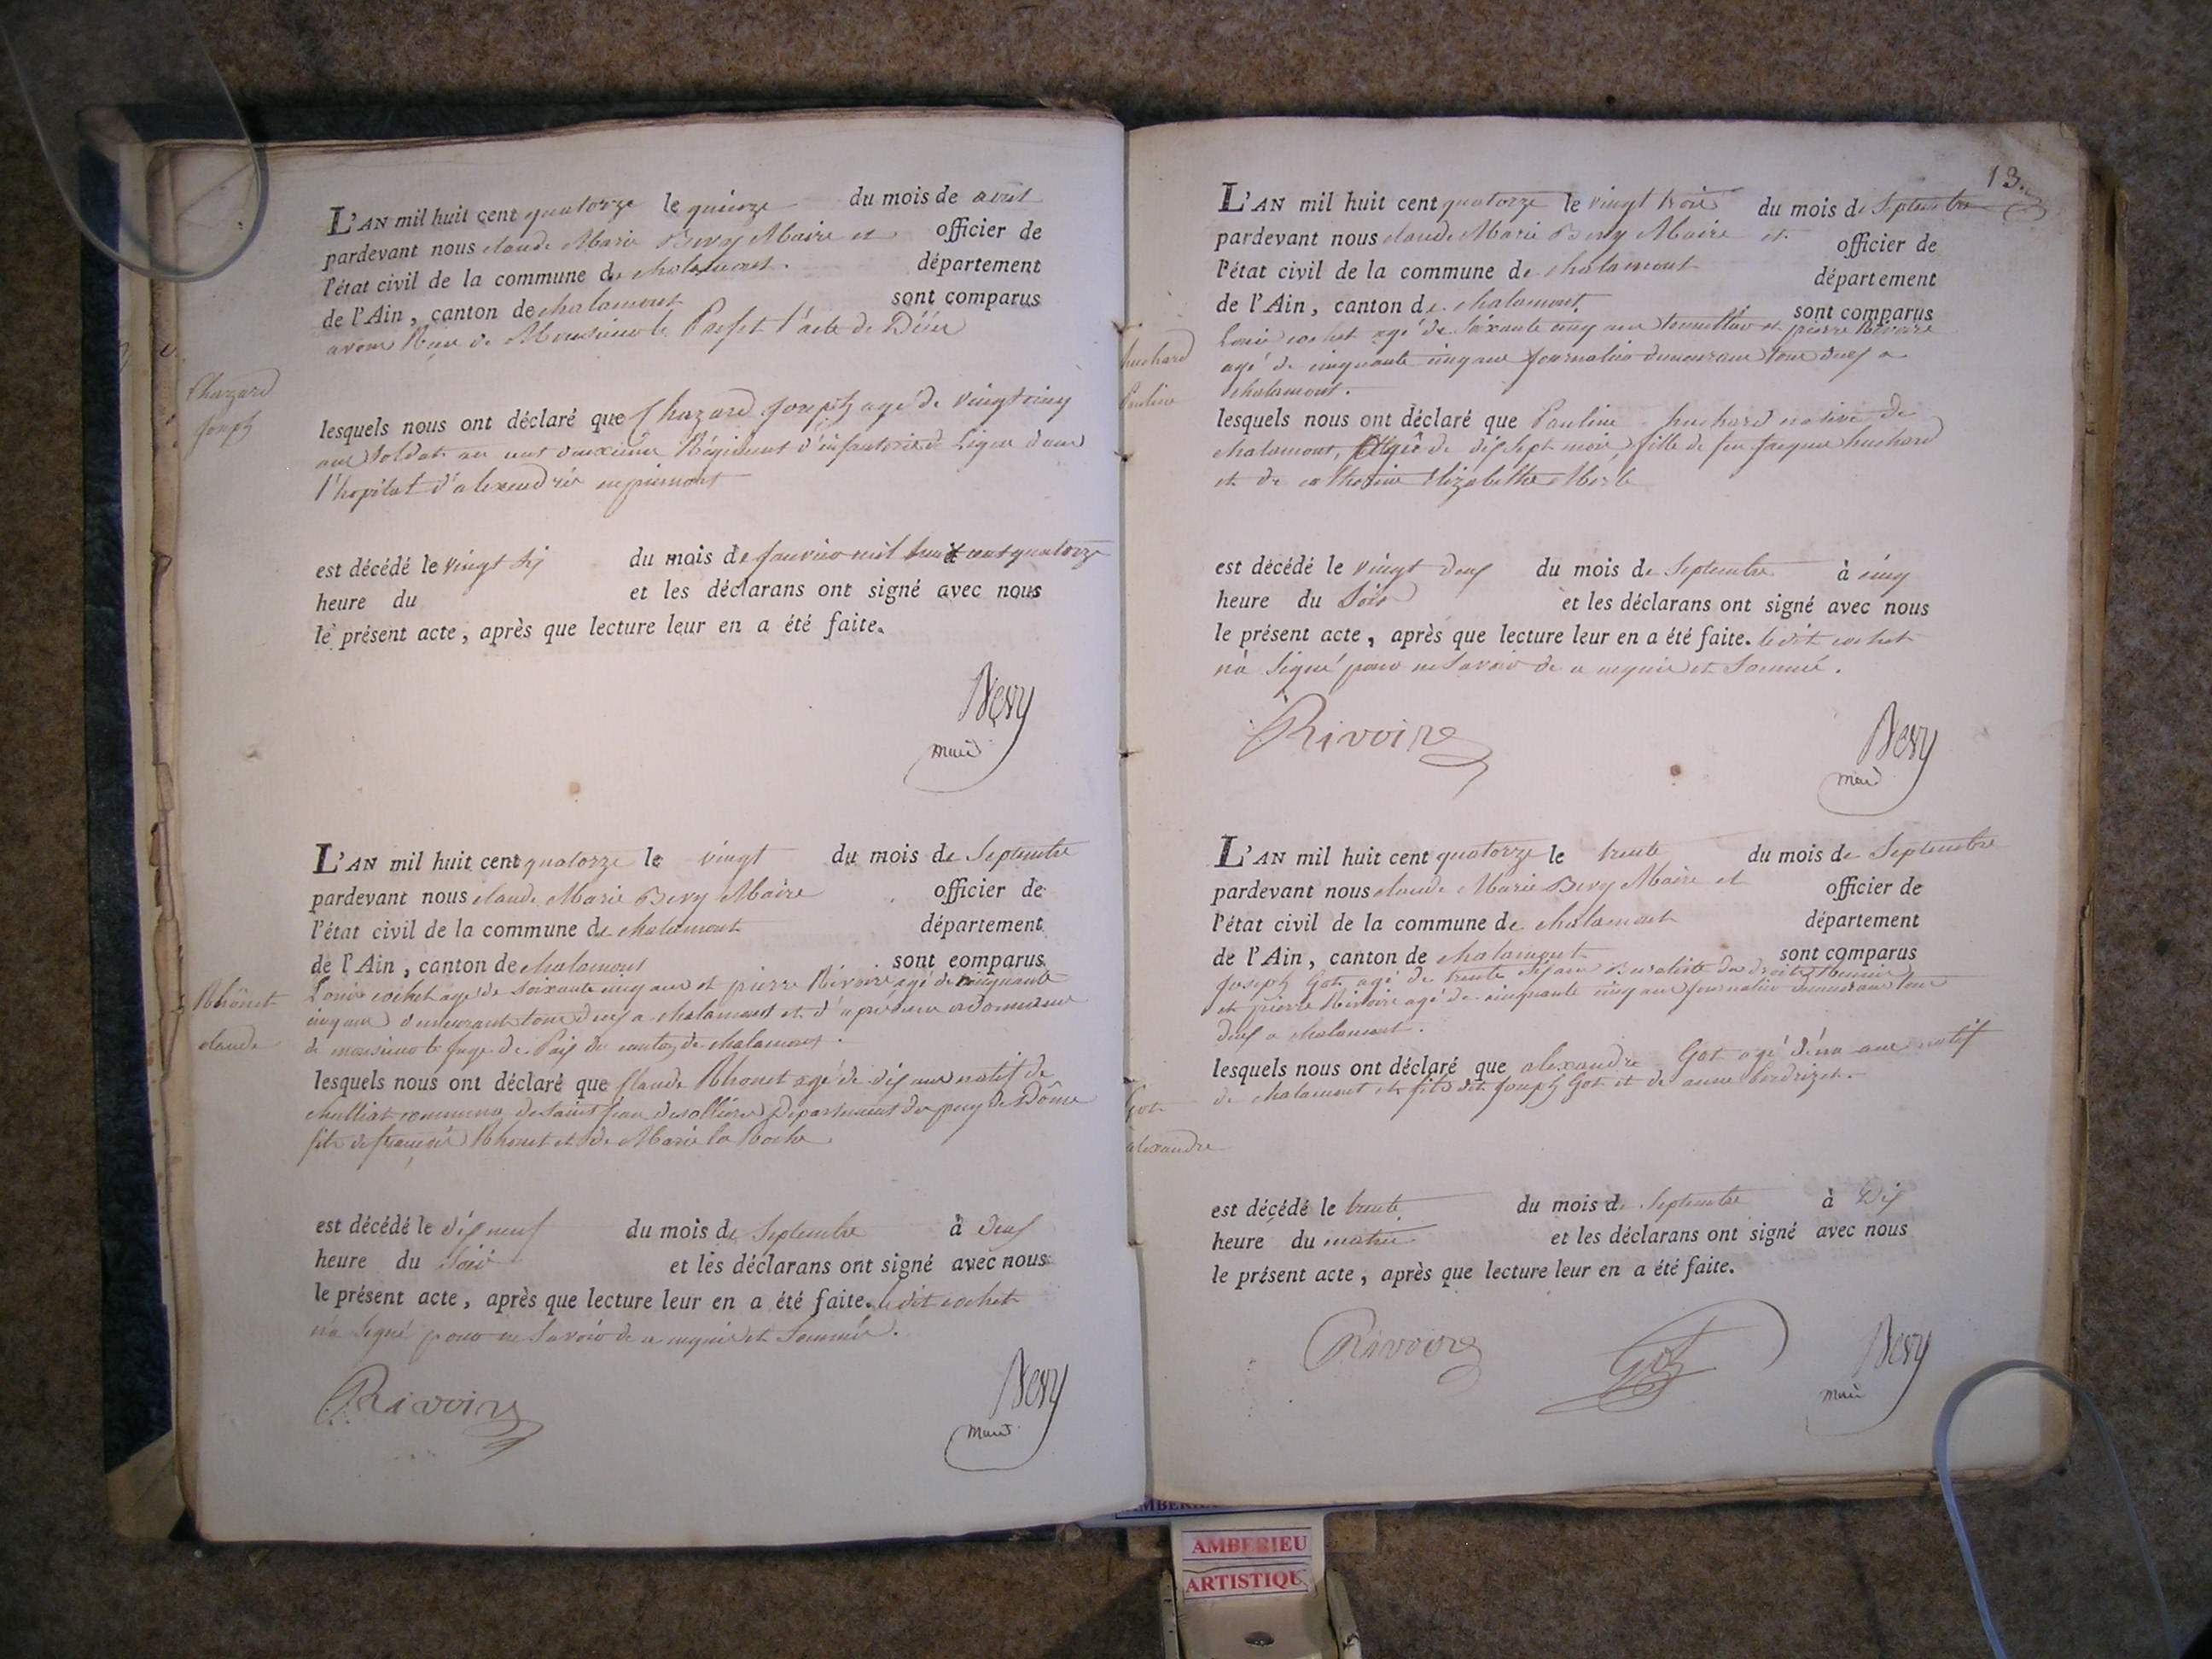 L'AN mil huit cent quatorze le quinze du mois de avril
pardevant nous claude Marie Bevy Maire et officier de
l'état civil de la commune de chalamont. département
de l'Ain, canton de chalamont sont comparus
avons Reçu de Monsieur le Prefet l'acte de Décès
Chazard
Joseph
lesquels nous ont déclaré que Chazard Joseph age de vingt cinq
ans soldat au cent deuxieme Régiment d'infanterie de Ligne dans
l'hopital d'alexandrie en piemont
est décédé le vingt six du mois de Janvier mil huit cent quatorze
heure du et les déclarans ont signé avec nous
le présent acte, après que lecture leur en a été faite.
Bevy
maire
L'AN mil huit cent quatorze le vingt du mois de Septembre
pardevant nous claude Marie Bevy Maire officier de
l'état civil de la commune de chalamont département
de l'Ain, canton de chalamont sont comparus
Rhônet
claude
Louis cochet agé de soixante cinq ans et pierre Rivoire agé de cinquante
cinq ans demeurant tous deux a chalamont et d'après une ordonnance
de monsieur le Juge de Paix du canton de chalamont.
lesquels nous ont déclaré que Claude Rhonet agé de dix ans natif de
commune de saint Jean des ollières Departement du puy de Dôme
fils de françois Rhonet et de Marie la Roche
est décédé le dix neuf du mois de Septembre à deux
heure du Soir et les déclarans ont signé avec nous
le présent acte, après que lecture leur en a été faite. le dit cochet
n'a signé pour ne savoir de ce enquis et sommé.
Rivoire
Bevy
maire
13.
L'AN mil huit cent quatorze le vingt trois du mois de Septembre
pardevant nous claude Marie Bevy Maire et officier de
l'état civil de la commune de chalamont département
de l'Ain, canton de chalamont sont comparus
Louis cochet agé de soixante cinq ans et pierre Rivoire
agé de cinquante cinq ans Journalier demeurans tous deux a
chalamont.
huchard
Pauline
lesquels nous ont déclaré que Pauline huchard native de
chalamont, agée de dix sept mois fille de feu Jacques huchard
et de catherine Elizabethe Merle
est décédé le vingt deux du mois de Septembre à cinq
heure du Soir et les déclarans ont signé avec nous
le présent acte, après que lecture leur en a été faite. le dit cochet
n'a signé pour ne savoir de ce enquis et sommé.
Rivoire
Bevy
maire
L'AN mil huit cent quatorze le trente du mois de Septembre
pardevant nous claude Marie Bevy Maire et officier de
l'état civil de la commune de chalamont département
de l'Ain, canton de chalamont sont comparus
Joseph Got agé de trente ans Buraliste des droits Réunis
et pierre Rivoire agé de cinquante cinq ans Journalier demeurans tous
deux a chalamont.
lesquels nous ont déclaré que alexandre Got agé d'un an natif
de chalamont et fils dt Joseph Got et de anne
Got
alexandre
est décédé le trente du mois de Septembre à dix
heure du matin et les déclarans ont signé avec nous
le présent acte, après que lecture leur en a été faite.
Rivoire
Got
Bevy
maire
AMBERIEU
ARTISTIQU